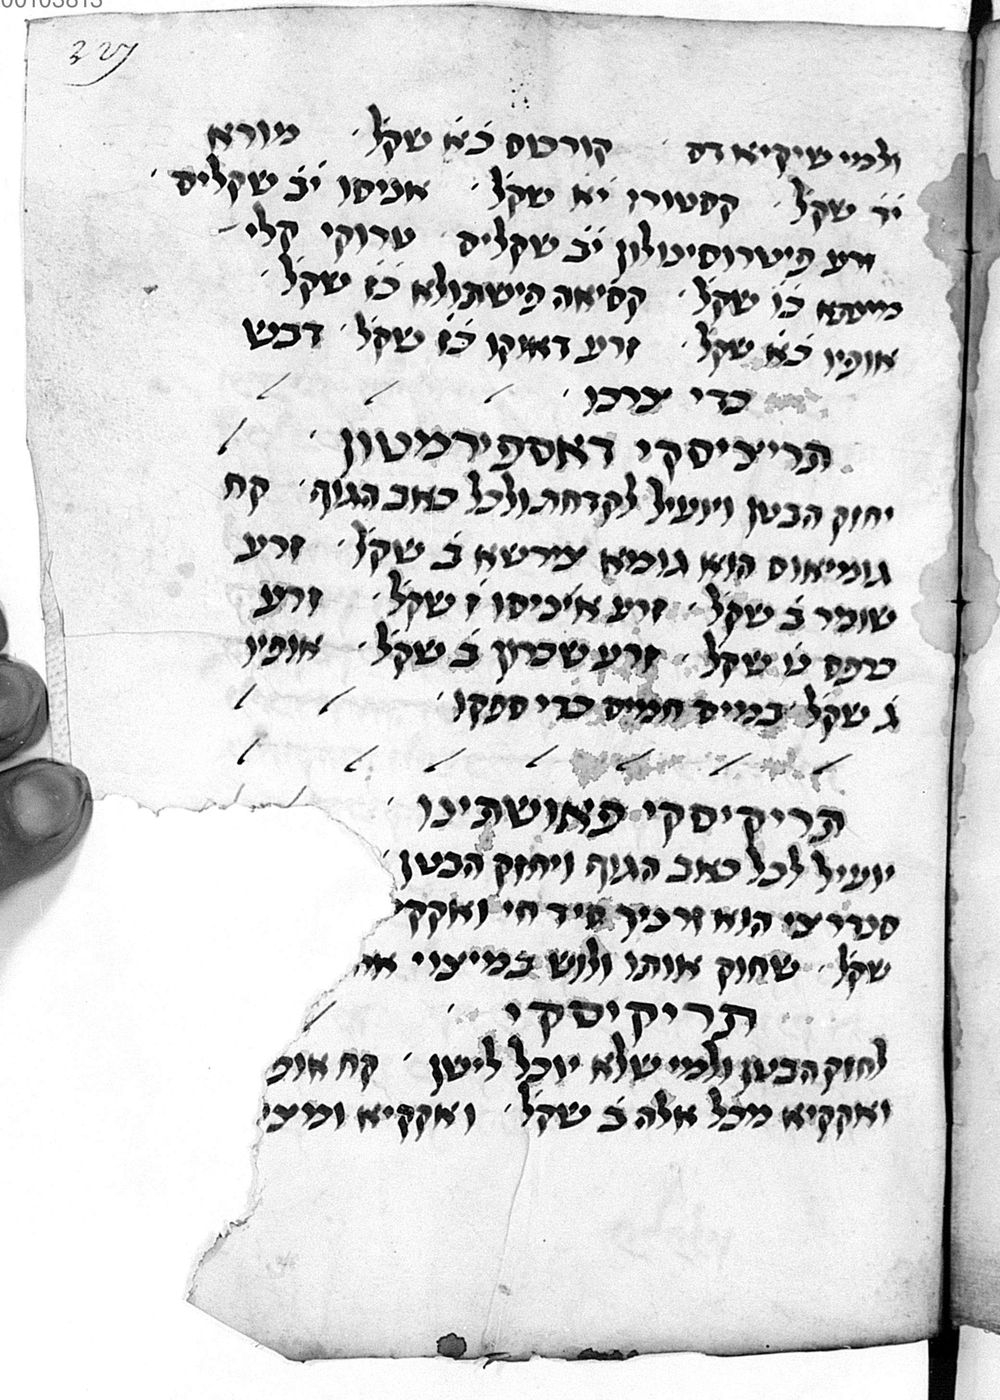 00103813
ולמי שיקיא דם קורטוס כ̇א̇ שקל̇ מורא
י̇ד̇ שקל̇ קסטורי י̇א̇ שקל̇ אניסו י̇ב̇ שקלים
זרע פיטרוסינולון י̇ב̇ שקלים טרוקי קלי
כ̇ו̇ שקל̇ קסיאה פישתולא כ̇ז̇ שקל̇
אופיו כ̇א̇ שקל̇ זרע דאוקו כ̇ז̇ שקל̇ דבש
כדי צרכו
תריציסקי דאספירמטון
יחזק הבטן ויועיל לקדחת ולכל כאב הגוף קח
גומיאוס הוא גומא צירשא ב̇ שקל̇ זרע
שומר ב̇ שקל̇ זרע אניסו ז̇ שקל̇ זרע
כרפס ט̇ שקל̇ זרע שכרון ב̇ שקל̇ אופיו
ג̇ שקל̇ במים חמים כדי ספקו
תריקיסקי פאושתינו
יועיל לכל כאב הגוף ויחזק הבטן
סנדרצי הוא זרניך סיד חי ואקקי
שקל̇ שחוק אותו ולוש במיצוי
תריקיסקי
לחזק הבטן ולמי שלא יוכל לישן קח אופ
ואקקיא מכל אלה ב̇ שקל̇ ואקקיא ומיצי